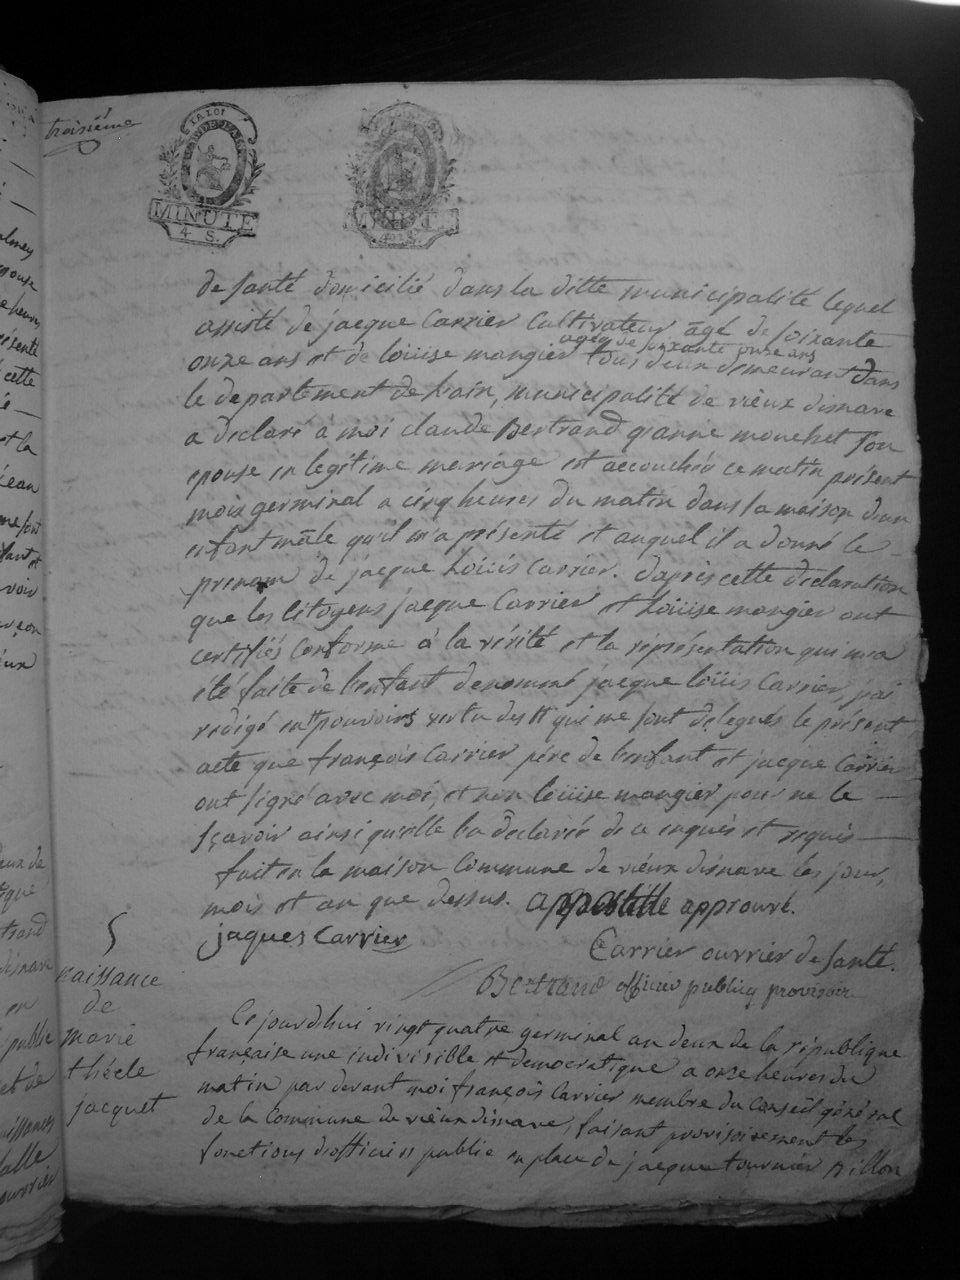 troisième
LA LOI
MINUTE
4. S.
de santé domicilié dans la ditte municipalité lequel
assisté de jacque Carrier Cultivateur âgé de soixante
agée de soixante onze ans
onze ans et de loüise mangier tous deux demeurant dans
le departement de l'ain, municipalité de vieux disnave
a declaré a moi claude Bertrand q'anne mouchet son
epouse en legitime mariage est accouchée ce matin présent
mois germinal a cinq heures du matin dans sa maison d'un
enfant mâle qu'il m'a présenté et auquel il a donné le
prenom de jacque Loüis Carrier. d'après cette declaration
que les Citoyens jacque Carrier et Loüise mangier ont
certifiés Conforme à la vérité et la représentation qui m'a
été faite de l'enfant denommé jacque loüis Carrier, j'ai
redigé en pouvoirs qui me sont delegués le présent
acte que françois Carrier pére de l'enfant et jacque Carrier
ont signé avec moi, et non loüise mangier pour ne le
sçavoir ainsi qu'elle l'a declarée de ce enquis et requis
fait en la maison Commune de vieux disnave les jour,
mois et an que dessus. appostille approuvé.
jaques Carrier
Carrier ouvrier de santé.
Bertrand officier publicq provisoir
5
naissance
de
marie
thécle
jacquet
Cejourdhui vingt quatre germinal an deux de la république
française une indivisible et democratique a onze heures du
matin par devant moi françois Carrier membre du Conseil général
de la Commune de vieux disnave, faisant provisoirement les
fonctions d'officier publie en place de jacque tournier Billon